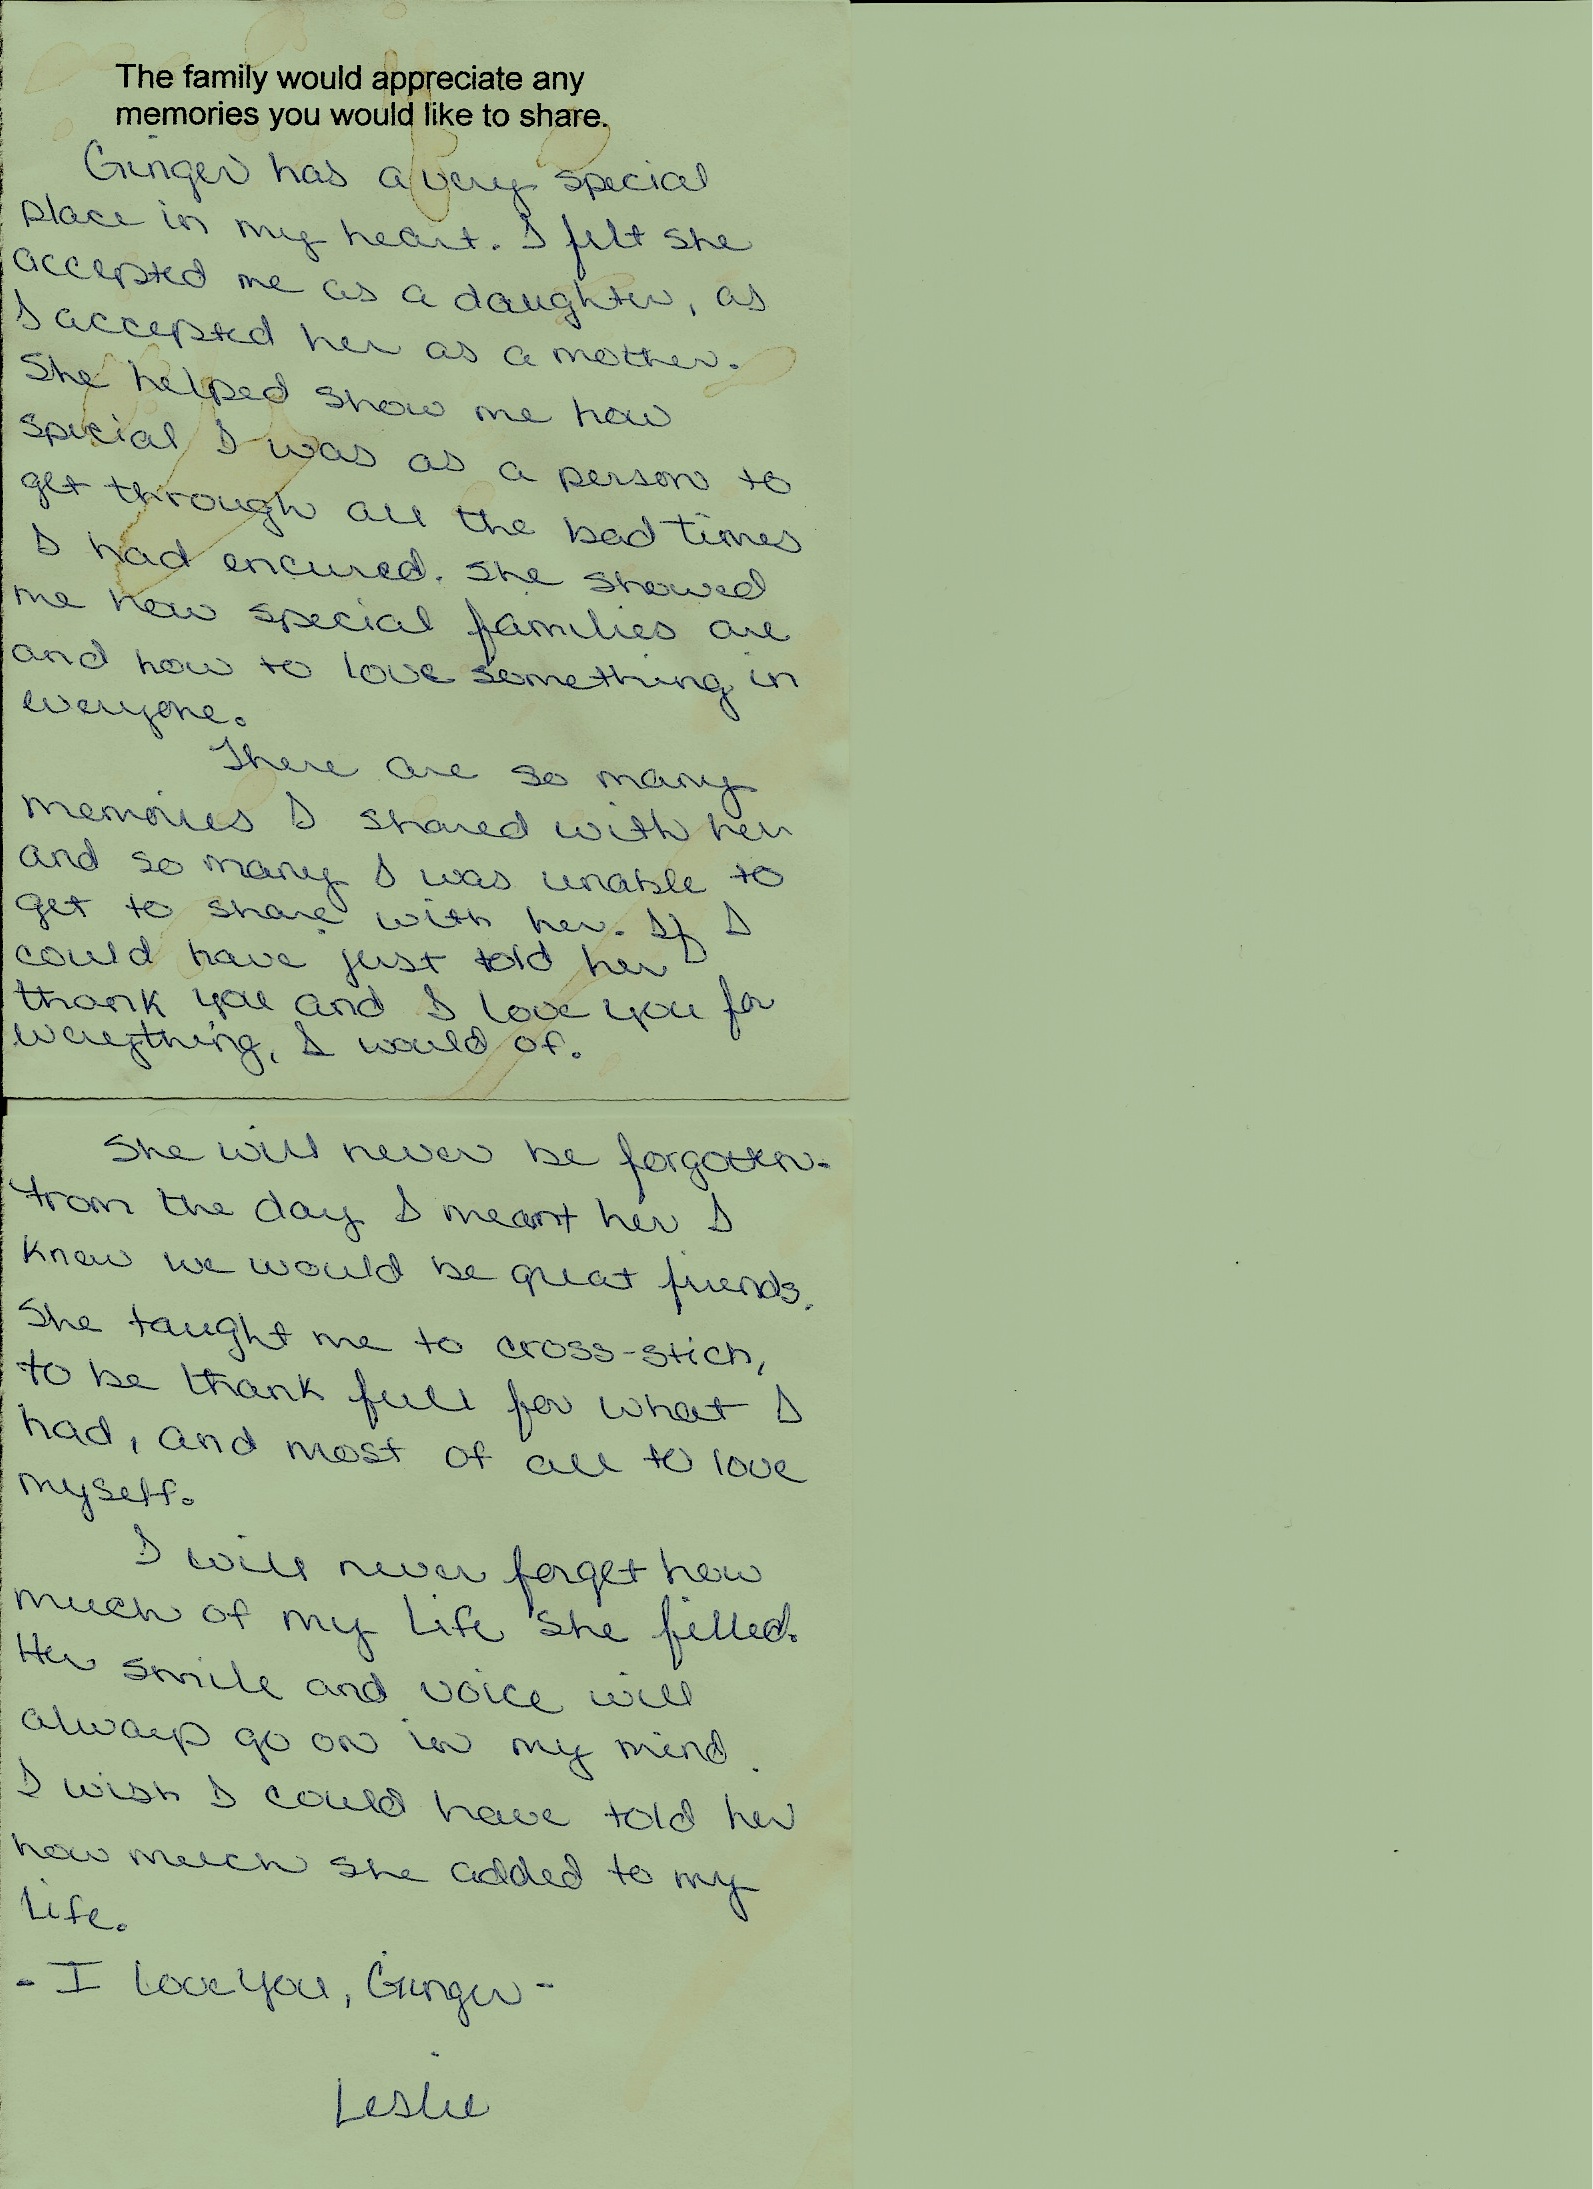 The family would appreciate any
memories you would like to share.
Ginger has a very special
place in my heart. I felt she
accepted me as a daughter, as
I accepted her as a mother.
She helped show me how
special I was as a person to
get through all the bad times
I had encured. She showed
me how special families are
and how to love something in
everyone.
There are so many
memories I shared with her
and so many I was unable to
get to share with her. If I
could have just told her
thank you and I love you for
everything, I would of.
She will never be forgotten.
From the day I meant her I
knew we would be great friends.
She taught me to cross-stich,
to be thank full for what I
had, and most of all to love
myself.
I will never forget how
much of my life she filled.
Her smile and voice will
always go on in my mind.
I wish I could have told her
how much she added to my
life.
- I love you, Ginger -
Leslie